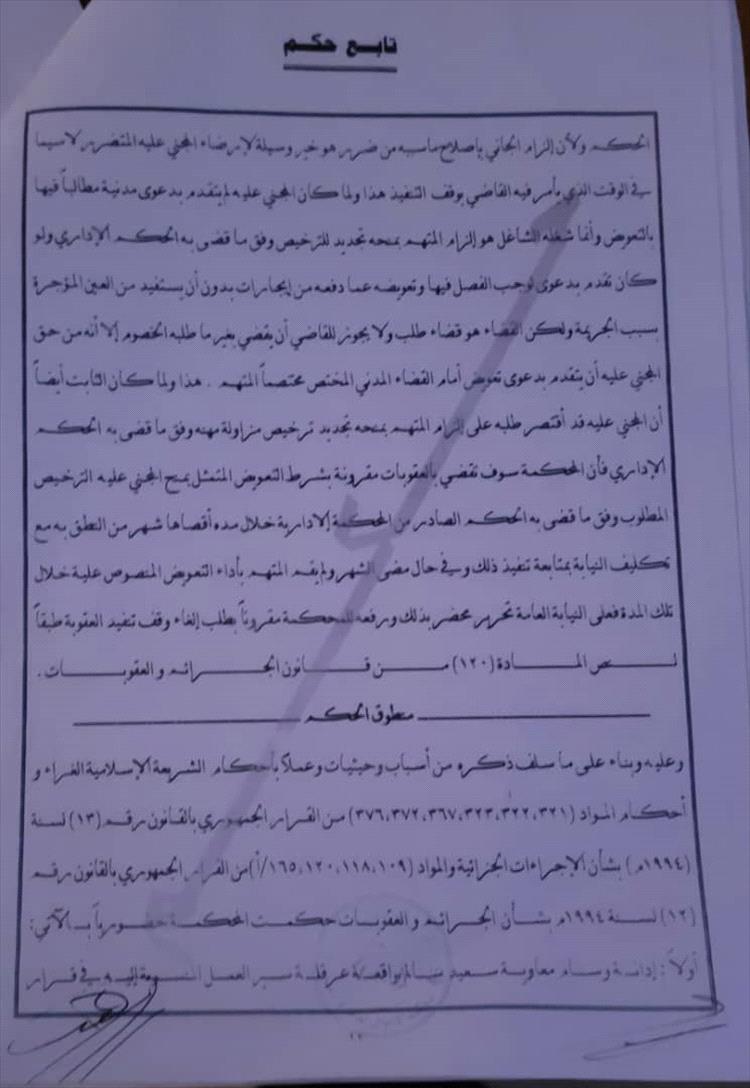 تابع حكم
الحكم ولأن إلزام الجاني بإصلاح ما سببه من ضرر هو خير وسيلة لإرضاء المجني عليه المتضرر لاسيما
في الوقت الذي يأمر فيه القاضي بوقف التنفيذ هذا ولما كان المجني عليه لم يتقدم بدعوى مدنية مطالباً فيها
بالتعويض وأنما شغله الشاغل هو إلزام المتهم بمنحه تجديد للترخيص وفق ما قضى به الحكم الإداري ولو
كان تقدم بدعوى لوجب الفصل فيها وتعويضه عما دفعه من إيجارات بدون أن يستفيد من العين المؤجرة
بسبب الجريمة ولكن القضاء هو قضاء طلب ولا يجوز للقاضي أن يقضي بغير ما طلبه الخصوم إلا أنه من حق
المجني عليه أن يتقدم بدعوى تعويض أمام القضاء المدني المختص مختصماً المتهم . هذا ولما كان الثابت أيضاً
أن المجني عليه قد أقتصر طلبه على إلزام المتهم بمنحه تجديد ترخيص مزاولة مهنه وفق ما قضى به الحكم
الإداري فأن المحكمة سوف تقضي بالعقوبات مقرونة بشرط التعويض المتمثل بمنح المجني عليه الترخيص
المطلوب وفق ما قضى به الحكم الصادر من المحكمة الإدارية خلال مده أقصاها شهر من النطق به مع
تكليف النيابة بمتابعة تنفيذ ذلك وفي حال مضى الشهر ولم يقم المتهم بأداء التعويض المنصوص علية خلال
تلك المدة فعلى النيابة العامة تحرير محضر بذلك ورفعه للمحكمة مقروناً بطلب إلغاء وقف تنفيذ العقوبة طبقاً
لنص المادة (١٢٠) من قانون الجرائم والعقوبات .
منطوق الحكم
وعليه وبناء على ما سلف ذكره من أسباب وحيثيات وعملاً بأحكام الشريعة الإسلامية الغراء و
أحكام المواد (٣٢١،٣٢٢،٣٢٣،٣٦٧،٣٧٢،٣٧٦) من القرار الجمهوري بالقانون رقم (١٣) لسنة
(١٩٩٤م) بشأن الإجراءات الجزائية والمواد (١٠٩،١١٨،١٢٠،١٦٥/أ) من القرار الجمهوري بالقانون رقم
(١٢) لسنة ١٩٩٤م بشأن الجرائم والعقوبات حكمت المحكمة حضورياً بالآتي:
أولاً : إدانة وسام معاوية سعيد سالم بواقعة عرقلة سير العمل المنسوبة إليه في قرار